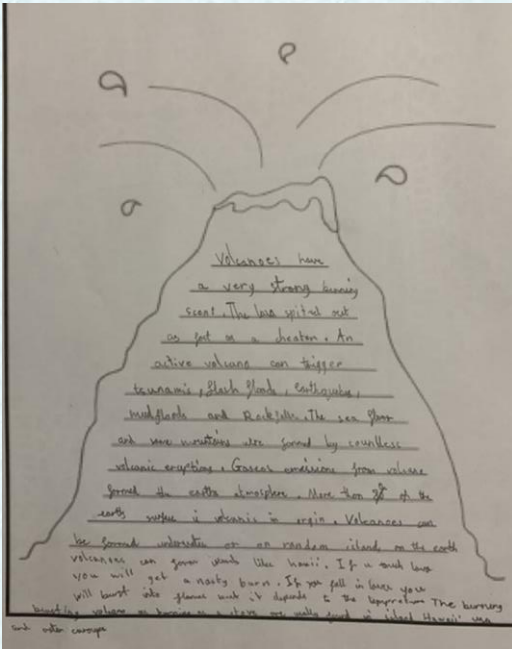 Volcanoes have
a very strong burning
scent. The lava spited out
as fast as a cheatan. An
active volcano can trigger
tsunamis, flash floods, earthquakes,
mudfloods and Rockfalls. The sea floor
and some mountains are formed by countless
volcanic eruptions. Gaseos emissions from volcano
formed the earths atmosphere. More than 80% of the
earth surface is volcanic in orgin. Volcanoes can
be formed underwater or on random island on the earth
volcanoes can form islands like hawii. If u touch lava
you will get a nasty burn. If you fall in lava you
will burst into flames but it depends to the temperature The burning
volcano as burning as a stove are found in island Hawaii usa
and other